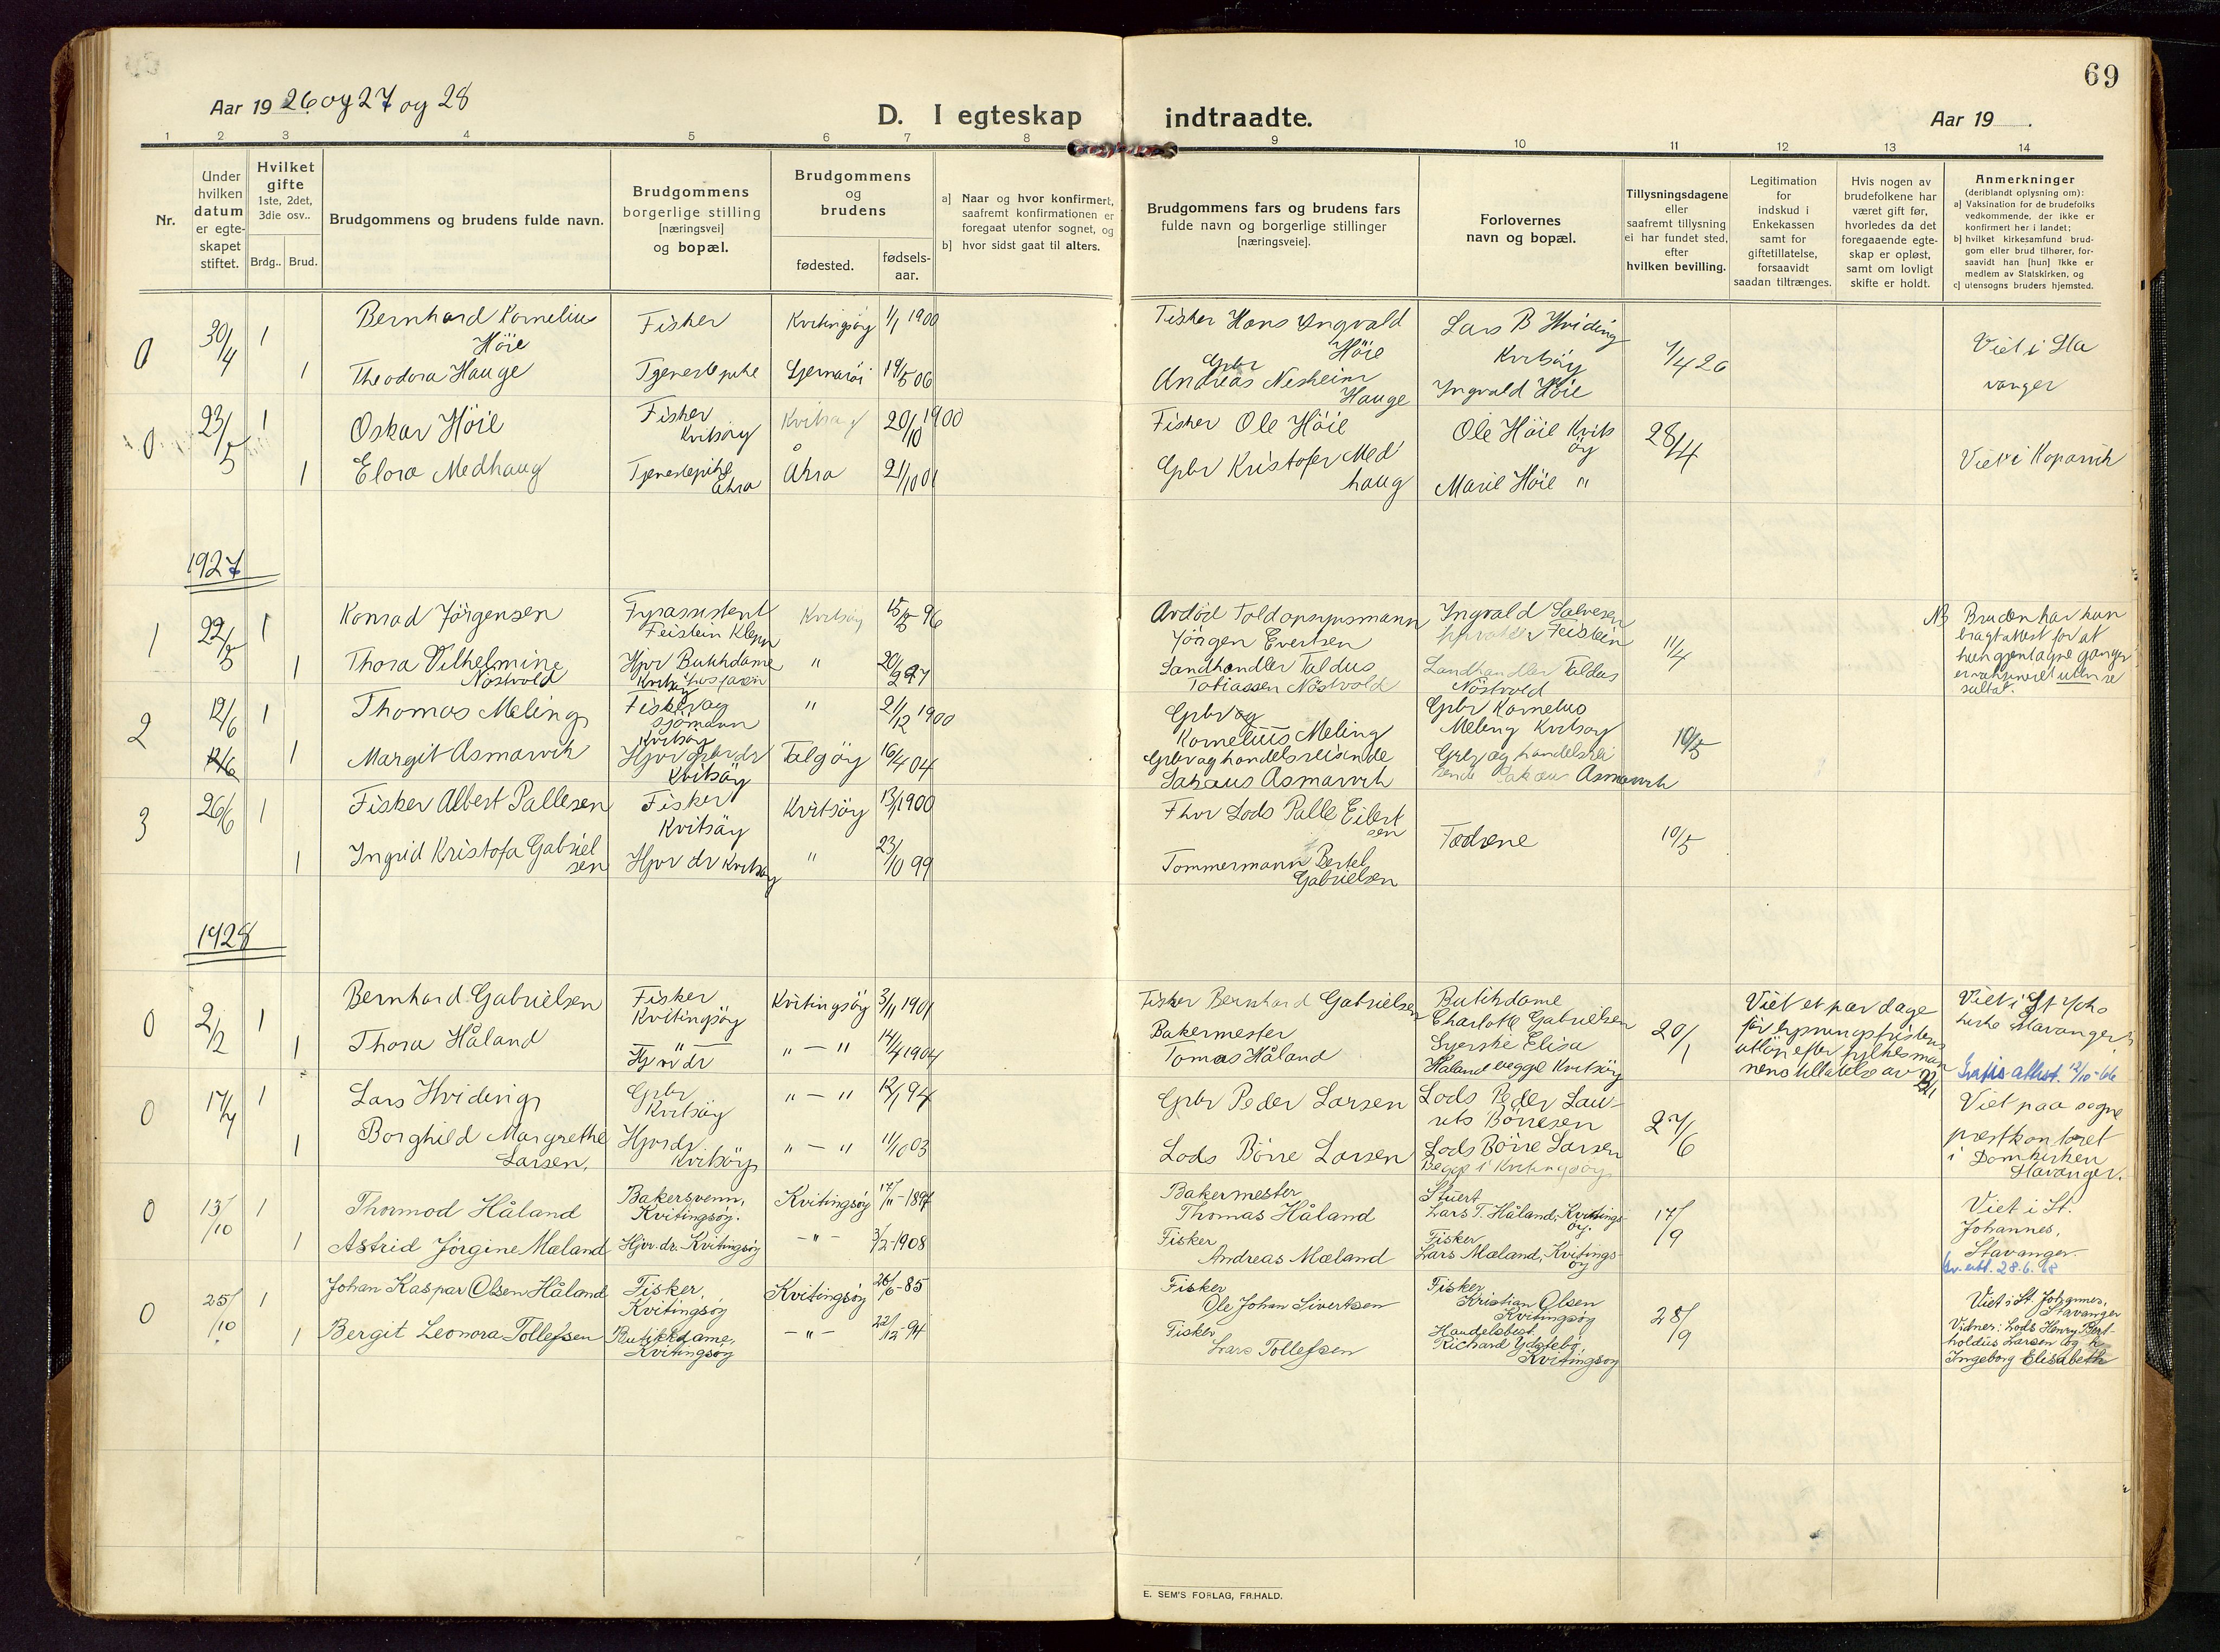 69
Aar 19 26 og 27 og 28
D. I egteskap indtraadte.
Aar 19
1 2 3 4 5 6 7 8 9 10 11 12 13 14
Nr.
Under hvilken datum er egte-skapet stiftet.
Hvilket gifte 1ste, 2det, 3die osv..
Brdg.. Brud.
Brudgommens og brudens fulde navn.
Brudgommens borgerlige stilling [næringsvei] og bopæl.
Brudgommens og brudens
fødested.
fødsels-aar.
a] Naar og hvor konfirmert, saafremt konfirmationen er foregaat utenfor sognet, og
b] hvor sidst gaat til alters.
Brudgommens fars og brudens fars fulde navn og borgerlige stillinger [næringsveie].
Forlovernes navn og bopæl.
Tillysningsdagene eller saafremt tillysning ei har fundet sted, efter hvilken bevilling.
Legitimation for indskud i Enkekassen samt for giftetillatelse, forsaavidt saadan tiltrænges.
Hvis nogen av brudefolkene har været gift før, hvorledes da det foregaaende egte-skap er opløst, samt om lovligt skifte er holdt.
Anmerkninger (deriblandt oplysning om): a) Vaksination for de brudefolks vedkommende, der ikke er konfirmert her i landet; b) hvilket kirkesamfund brud-gom eller brud tilhører, for-saavidt han [hun] ikke er medlem av Statskirken, og c) utensogns bruders hjemsted.
0 30/4 1 Bernhard Kornelius Höie Fisker Kvitingsöy 1/1 1900 Fisker Hans Ingvald Höie Lars B Hviding Kvitsöy 7/4 26 Viet i Sta vanger
1 Theodora Hauge Tjenestepike Sjernaröi 19/5 06 Gpbr Andreas Nesheim Hauge Ingvald Höie
0 23/5 1 Oskar Höie Fisker Kvitsöy Kvitsöy 20/10 1900 Fisker Ole Höie Ole Höie Kvits öy 28/4 Viet i Kopervik
1 Elora Medhaug Tjenestepike Åkra Åkra 21/10 01 Gpbr Kristofer Med haug Marie Höie "
1927
1 22/5 1 Konrad Jörgensen Fyrassistent Feistein Klepp Kvitsöy 15/5 96 Avdöd Toldopsynsmann Jörgen Evertsen Ingvald Salvesen Feistein 11/4 NB Bruden har han bragt attest for at hun gjentagne ganger er vaksineret uten re sultat.
1 Thora Vilhelmine Nöstvold Hjvr Butikdame Kvitsöy hos faren " 20/2 97 Landhandler Taldus Tobiassen Nöstvold Landhandler Taldus Nöstvold
2 12/6 1 Thomas Meling Fisker og sjömann Kvitsöy " 21/12 1900 Gpbr og Kornelius Meling Gpbr Kornelius Meling Kvitsöy 10/5
12/6 1 Margit Asmarvik Hjvr gpbr dr Kvitsöy Talgöy 16/4 04 Gpbr og handelsreisende Sakaus Asmarvik Gpbr og handelsrei sende Sakaus Asmarvik
3 26/6 1 Fisker Albert Pallesen Fisker Kvitsöy Kvitsöy 13/1 1900 Fhv Lods Palle Eilert sen Fædrene 10/5
1 Ingrid Kristofa Gabriel sen Hjvr dr Kvitsöy " 23/10 99 Tommermann Bertel Gabrielsen
1928
0 2/2 1 Bernhard Gabrielsen Fisker Kvitingsöy Kvitingsöy 3/11 1901 Fisker Bernhard Gabrielsen Butikdame Charlotte Gabrielsen 20/1 Viet et par dage för lysningsfristens utlöp efter fylkesman nens tillatelse av Viet i St Joha kirke Stavanger
1 Thora Håland Hj v dr " — " 14/4 1904 Bakermester Tomas Håland Syerske Elisa Håland begge Kvitsöy Gratis attest. 12/10-66
0 17/7 1 Lars Hviding Gpbr Kvitsöy " — " 12/1 94 Gpbr Peder Larsen Lods Peder Lau-rits Börresen 27/6 Viet paa sogne prestkontoret i Domkirken Stavanger.
1 Borghild Margrethe Larsen. Hjvr dr Kvitsöy " — " 11/10 03 Lods Börre Larsen Lods Börre Larsen Begge i Kvitingsöy
0 13/10 1 Thormod Håland Bakersvenn, Kvitingsöy. Kvitingsöy 17/11-1897 Bakermester Thomas Håland Stuert Lars T. Håland, Kvitings-öy. 17/9 Viet i St. Johannes, Stavanger.
1 Astrid Jörgine Mæland Hjv. dr. Kvitingsöy — " — 3/2-1908 Fisker Andreas Mæland Fisker Lars Mæland, Kvitings-öy 28.6.68
0 25/10 1 Johan Kaspar Olsen Håland Fisker, Kvitingsöy Kvitingsöy 26/6-85 Fisker Ole Johan Sivertsen Fisker Kristian Olsen Kvitingsöy 28/9 Viet i St. Johannes, Stavanger Vidner: Lods Henry Bert-holdus Larsen og Ingeborg Elisabeth
1 Bergit Leonora Tollefsen Butikkdame, Kvitingsöy — " — 22/12-94 Fisker Lars Tollefsen Handelsbest. Richard Ydstebö, Kvitingsöy
E. SEM'S FORLAG, FR.HALD.